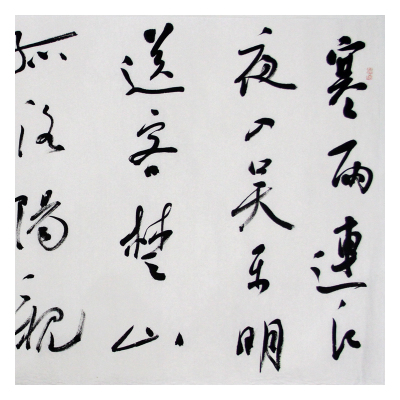 寒雨連江
夜入吴平明
送客楚山
孤洛陽親